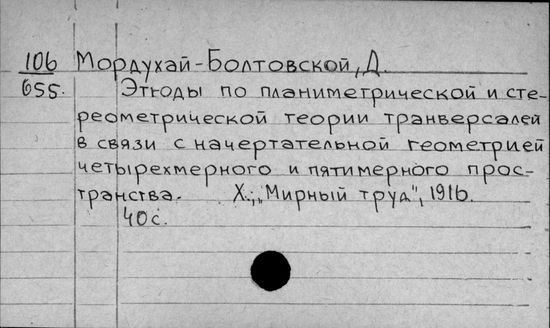 106 Мордухай-Болтовской, Д.
655. Этюды по планиметрической и сте-
реометрической теории транверсалей
в связи с начертательной геометрией
четырехмерного и пятимерного прос-
транства. Х.; „Мирный труд", 1916.
40с.